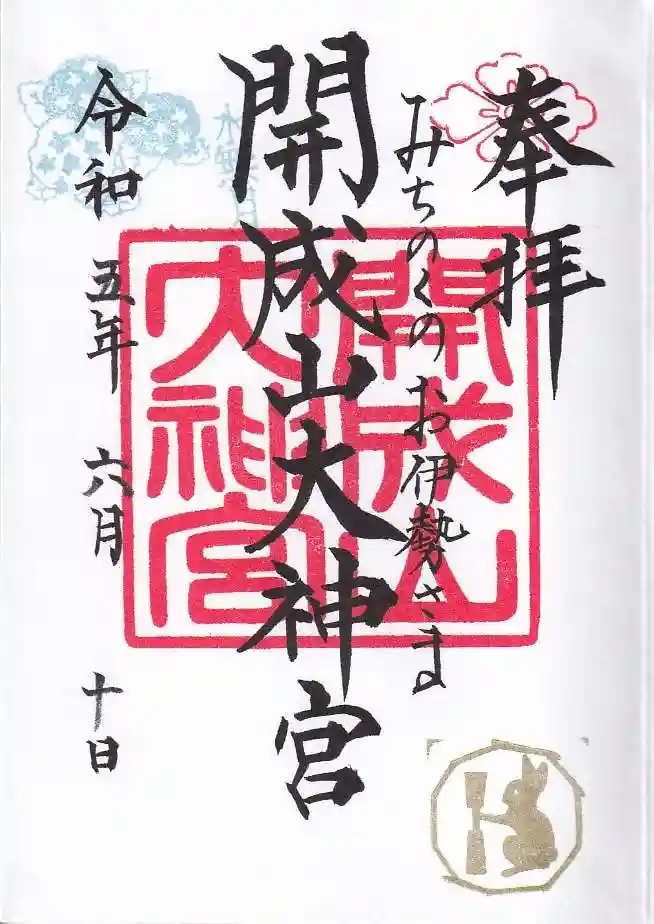 奉拝
みちのくのお伊勢さま
開成山大神宮
開成山
大神宮
令和五年六月十日